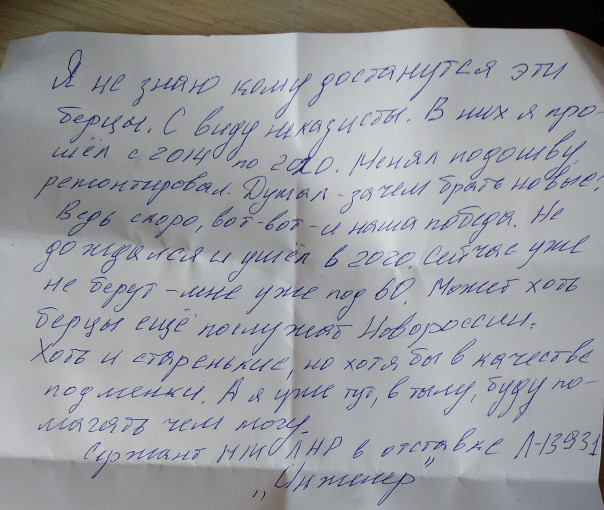 Я не знаю кому достанутся эти
берцы. С виду неказисты. В них я про-
шёл с 2014 по 2020. Менял подошву,
ремонтировал. Думал - зачем брать новые?
Ведь скоро, вот-вот - и наша победа. Не
дождался и ушёл в 2020. Сейчас уже
не берут - мне уже под 60. Может хоть
берцы ещё послужат Новороссии.
Хоть и старенькие, но хотя бы в качестве
подменки. А я уже тут, в тылу, буду по-
магать чем могу.
Сержант НМ ЛНР в отставке Л-13931
"Инженер"